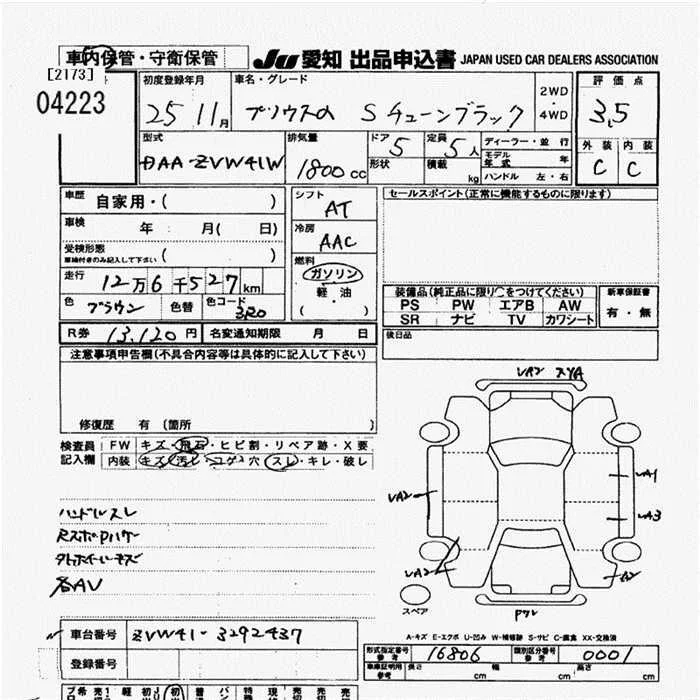 車内保管・守衛保管
JU 愛知 出品申込書 JAPAN USED CAR DEALERS ASSOCIATION
[2173]
04223
初度登録年月 車名・グレード 2WD ・ 4WD 評価点
25 11月 プリウスα Sチューンブラック 3.5
型式 排気量 ドア 5 定員 5人 ディーラー・並行 外装 内装
DAA-ZVW41W 1800cc 形状 積載 kg モデル年式 年 C C
ハンドル 左・右
車歴 自家用・( ) シフト AT セールスポイント(正常に機能するものに限ります)
車検 年 月( 日) 冷房 AAC
受検形態 ( )
車検付きのみ記入して下さい
燃料 ガソリン 軽・油 ( )
走行 12万6千527km
色 ブラウン 色替 色コード 3R0
装備品(純正品に限り○をつけてください) 新車保証書
PS PW エアB AW 有・無
SR ナビ TV カワシート
R券 13,120円 名変通知期限 月 日 後日品
注意事項申告欄(不具合内容等は具体的に記入して下さい)
修復歴 有 (箇所 )
検査員 FW キズ・飛石・ヒビ割・リペア跡・X要
記入欄 内装 キズ・汚レ・コゲ穴・スレ・キレ・破レ
ハンドルスレ
タイヤホイールキズ
各AV
UA2
UA2
UA1
UA3
UA2
スペア
A-キズ E-エクボ U-凹み W-補修跡 S-サビ C-腐食 XX-交換済
車台番号 ZVW41-3292437
登録番号
形式指定番号 参考 16806 類別区分番号 参考 0001
車庫証明用 参考 長さ cm 幅 cm 高さ cm